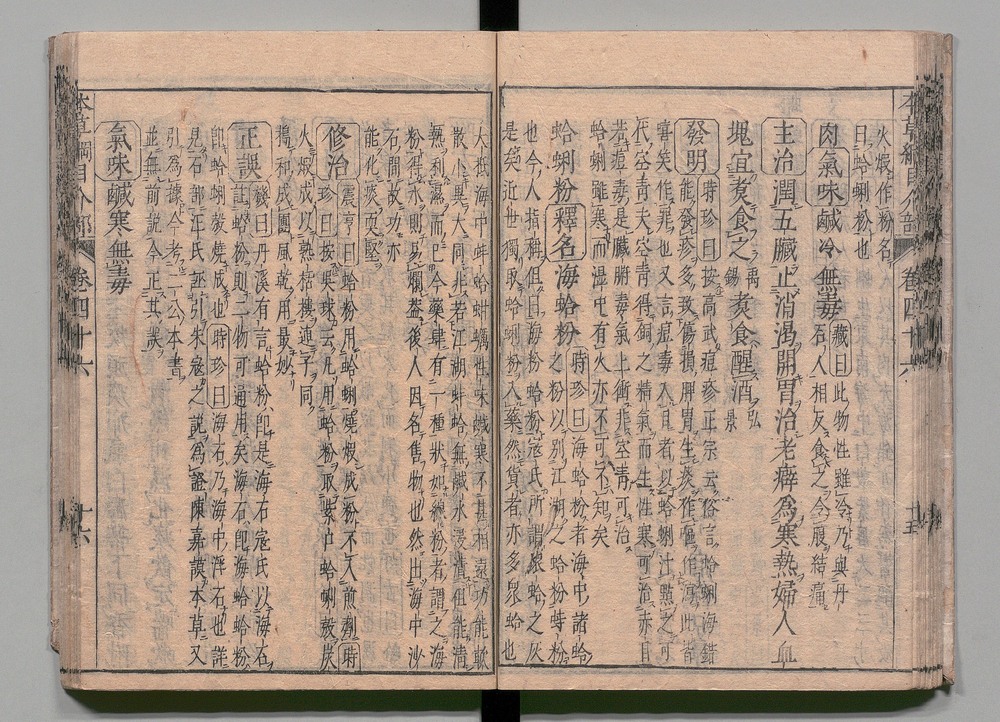 火煆作粉名
曰蛤蜊粉也
肉氣味鹹冷無毒藏曰此物性雖冷乃與丹
石人相反食之令腹結痛
主治潤五臟止消渴開胃治老癖爲寒熱婦人血
塊宜煮食之禹錫煮食醒酒弘景
發明時珍曰按高武痘疹正宗云俗言蛤蜊海錯
能發疹多致傷損脾胃生痰作嘔作瀉此皆
嘻笑作罪也又言痘毒入目者以蛤蜊汁點之可
代空青夫空青得銅之精氣而生性寒可治赤目
若痘毒是臟腑毒氣上衝非空青可治
蛤蜊雖寒而濕中有火亦不可不知矣
蛤蜊粉釋名海蛤粉時珍曰海蛤粉者海中諸蛤
之粉以別江湖之蛤粉蚌粉
也今人指稱但曰海粉蛤粉寇氏所謂衆蛤之灰
是矣近世獨取蛤蜊粉入藥然貨者亦多衆蛤也
大抵海中蚌蛤蚶蠣性味鹹寒不甚相遠功能軟
散小異大同非若江湖蚌蛤無鹹水浸漬但能清
熱利濕而已今藥肆有一種狀如線粉者謂之海
粉得水則易爛葢後人因名售物也然出海中沙
石間故功亦
能化痰耎堅
修治震亨曰蛤粉用蛤蜊燒煆成粉不入煎劑時
珍曰按吳球云凡用蛤粉取紫口蛤蜊殼炭
火煆成以熟栝樓連子同
擣和成團風乾用最妙
正誤機曰丹溪有言蛤粉即是海石寇氏以海石
註蛤粉則二物可通用矣海石即海蛤蛤粉
即蛤蜊殼燒成也時珍曰海石乃海中浮石也詳
見石部汪氏誣引朱寇之說爲證陳嘉謨本草又
引爲據今考二公本書
並無前說今正其誤
氣味鹹寒無毒
本草綱目介部
卷四十六
十五
卷四十六
十六